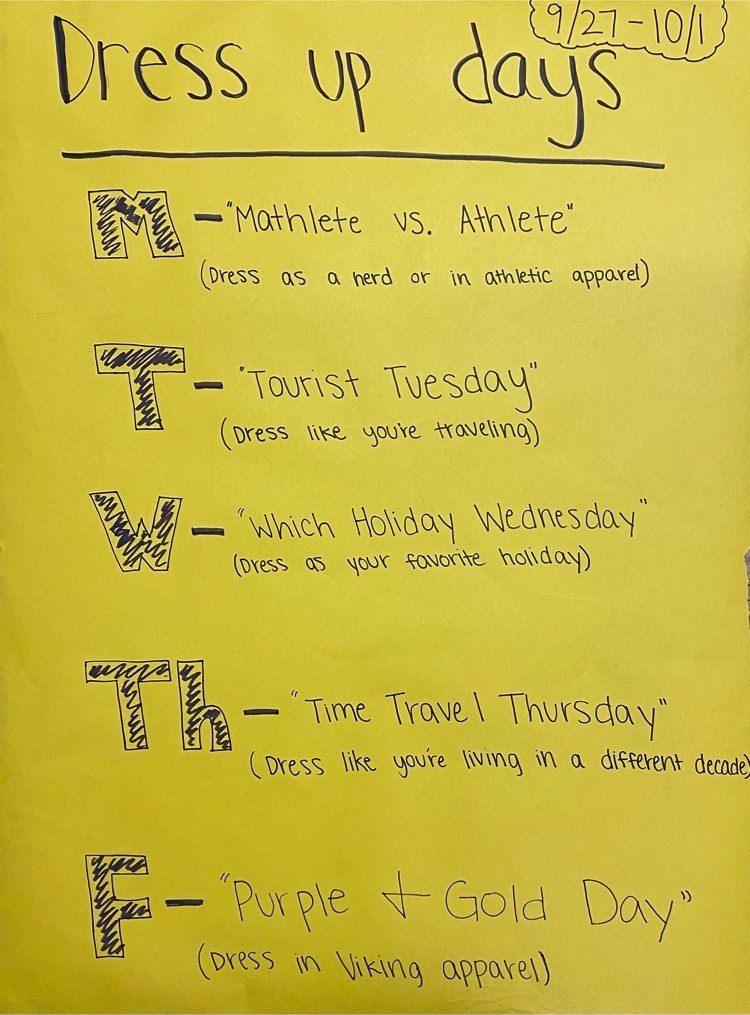 9/27-10/1
Dress up days
M - "Mathlete vs. Athlete"
(Dress as a nerd or in athletic apparel)
T - "Tourist Tuesday"
(Dress like you're traveling)
W - "Which Holiday Wednesday"
(Dress as your favorite holiday)
Th - "Time Travel Thursday"
(Dress like you're living in a different decade)
F - "Purple + Gold Day"
(Dress in Viking apparel)